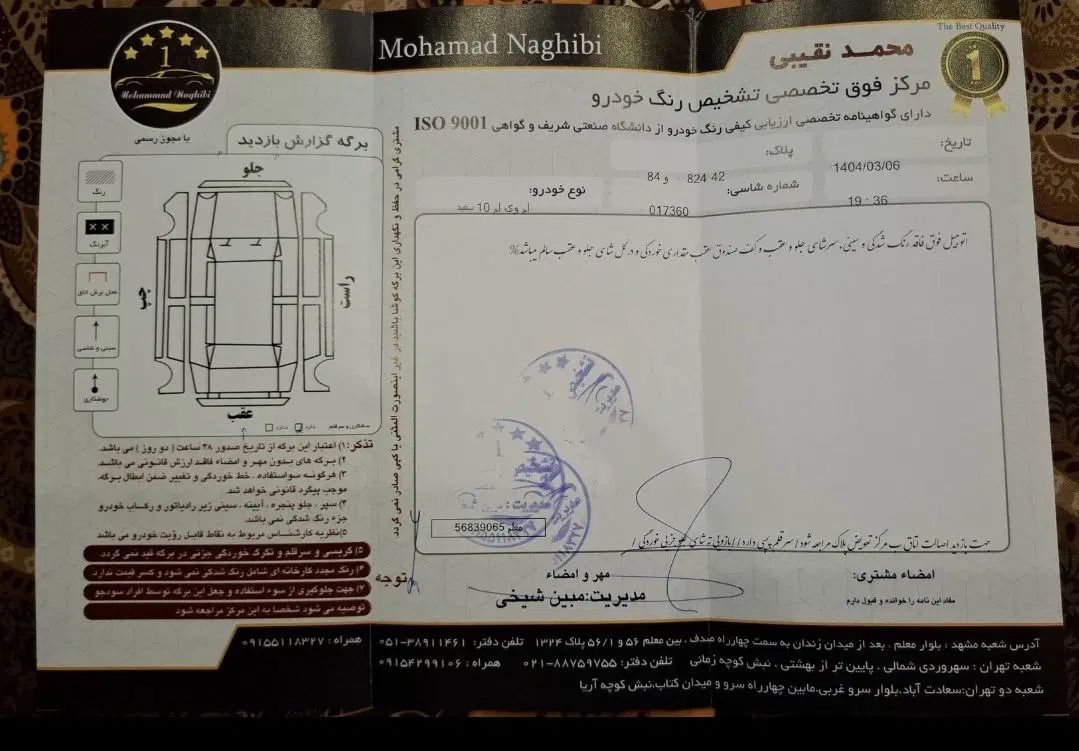 The Best Quality
Mohamad Naghibi
محمد نقیبی
مرکز فوق تخصصی تشخیص رنگ خودرو
دارای گواهینامه تخصصی ارزیابی کیفی رنگ خودرو از دانشگاه صنعتی شریف و گواهی ISO 9001
1
Mohammad Naghibi
با مجوز رسمی
تاریخ:
1404/03/06
پلاک:
42 824 و 84
ساعت:
19 : 36
شماره شاسی:
017360
نوع خودرو:
ام وی ام 10 سفید
اتومبیل فوق فاقد رنگ شدگی و سینی، سرشاسی جلو و عقب و کف صندوق عقب مقداری خوردگی و در کل شاسی جلو و عقب سالم میباشد%
برگه گزارش بازدید
جلو
چپ
راست
عقب
رنگ
آبرنگ
محل برش اتاق
سینی و شاسی
جوشکاری
صافکاری و سرقلم
دارد
ندارد
مشتری گرامی در حفظ و نگهداری این برگه کوشا باشید در غیر اینصورت المثنی یا کپی صادر نمی گردد.
تذکر: ۱) اعتبار این برگه از تاریخ صدور ۴۸ ساعت (دو روز) می باشد.
۲) برگه های بدون مهر و امضاء فاقد ارزش قانونی می باشد.
۳) هرگونه سواستفاده، خط خوردگی و تغییر ضمن ابطال برگه،
موجب پیگرد قانونی خواهد شد.
۴) سپر، جلو پنجره، آیینه، سینی زیر رادیاتور و رکاب خودرو
جزء رنگ شدگی نمی باشد.
۵) نظریه کارشناس مربوط به نقاط قابل رؤیت خودرو می باشد
۵) گریسی و سرقلم و تگرگ خوردگی جزئی در برگه قید نمی گردد.
۶) رنگ مجدد کارخانه ای شامل رنگ شدگی نمی شود و کسر قیمت ندارد.
۷) جهت جلوگیری از سوء استفاده و جعل این برگه توسط افراد سودجو
توصیه می شود شخصا به این مرکز مراجعه شود
توجه
معلم 56839065
جهت بازدید اصالت اتاق ب مرکز تعویض پلاک مراجعه شود/ سرقلم پسی دارد/
مهر و امضاء
مدیریت: مبین شیخی
امضاء مشتری:
مفاد این نامه را خوانده و قبول دارم.
آدرس شعبه مشهد : بلوار معلم . بعد از میدان زندان به سمت چهارراه صدف . بین معلم ۵۶ و ۵۶/۱ پلاک ۱۳۲۴ تلفن دفتر: ۳۸۹۱۱۴۶۱-۰۵۱ همراه : ۰۹۱۵۵۱۱۸۳۲۷
شعبه تهران : سهروردی شمالی . پایین تر از بهشتی . نبش کوچه زمانی تلفن دفتر: ۸۸۷۵۹۷۵۵-۰۲۱ همراه : ۰۹۱۵۴۲۹۹۱۰۶
شعبه دو تهران:سعادت آباد.بلوار سرو غربی.مابین چهارراه سرو و میدان کتاب.نبش کوچه آریا